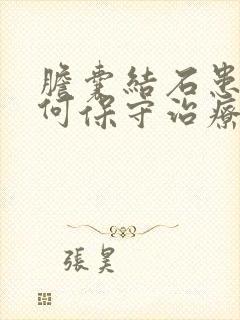 膽囊結石患
何保守治療
張昊